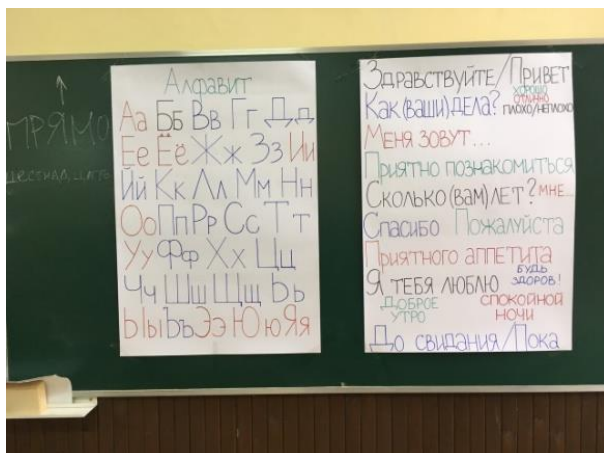 ПРЯМО
Алфавит
Аа Бб Вв Гг Дд
Ее Ёё Жж Зз Ии
Йй Кк Лл Мм Нн
Оо Пп Рр Сс Тт
Уу Фф Хх Цц
Чч Шш Щщ Ьь
Ыы Ъъ Ээ Юю Яя
Здравствуйте/Привет
Как (ваши) дела? хорошо
отлично
плохо/неплохо
Меня зовут...
Приятно познакомиться
Сколько (вам) лет? мне...
Спасибо Пожалуйста
Приятного аппетита
Я тебя люблю будь
здоров!
Доброе
утро
спокойной
ночи
До свидания/Пока